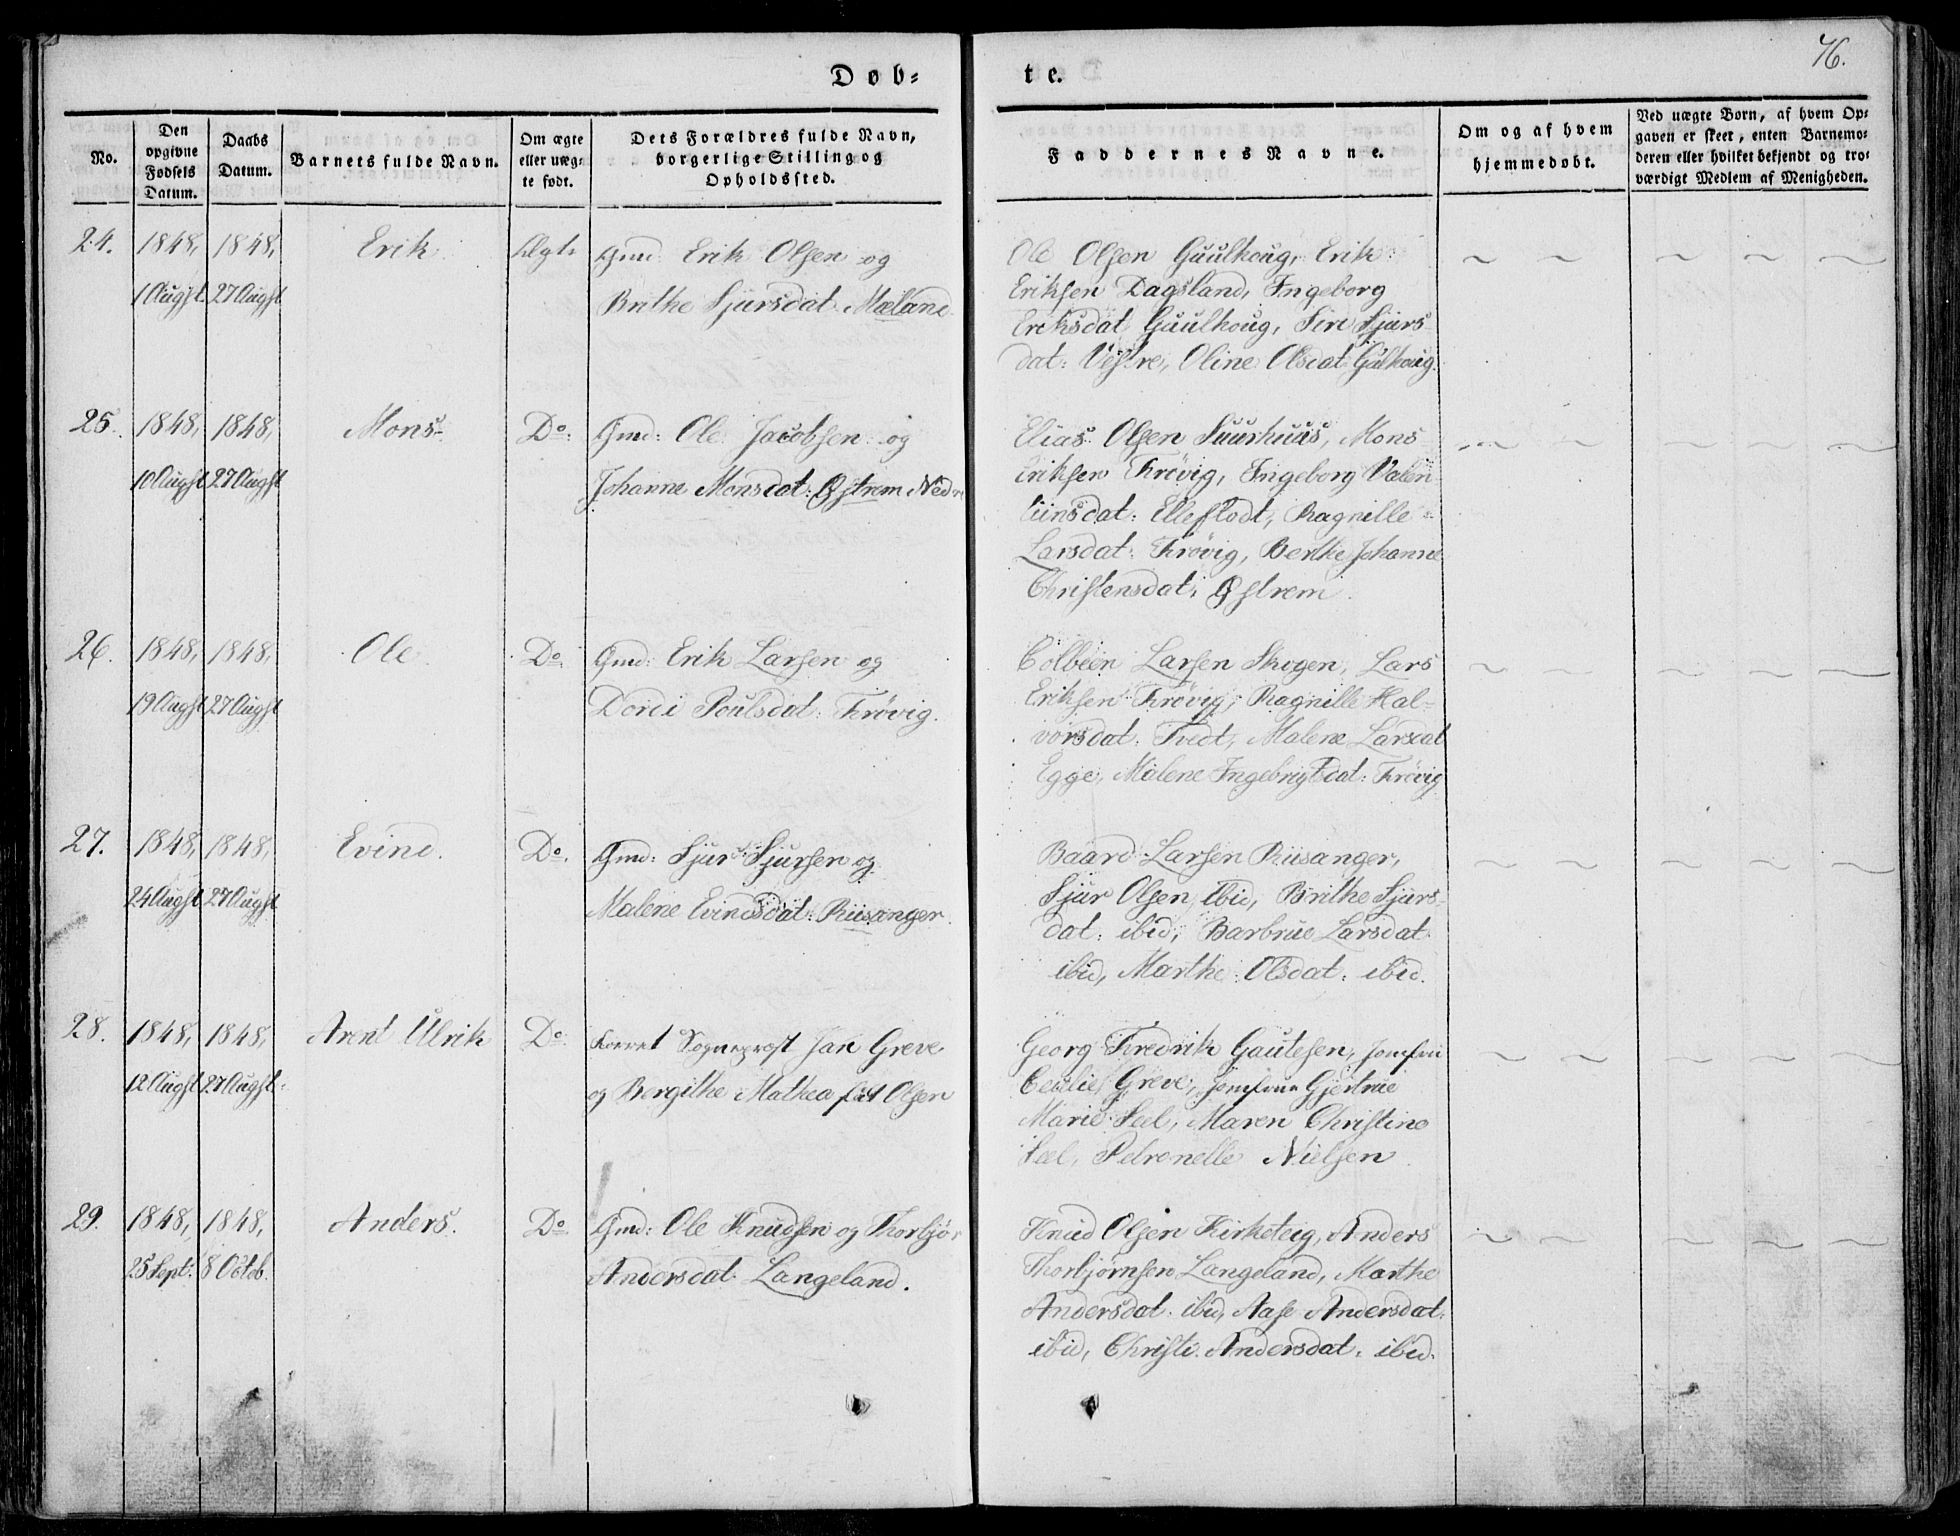 76.
Døb-
te.
No.
Den opgivne Fødsels Datum.
Daabs Datum.
Barnets fulde Navn.
Om ægte eller uæg-te født.
Dets Forældres fulde Navn, borgerlige Stilling og Opholdssted.
Faddernes Navne.
Om og af hvem hjemmedøbt.
Ved uægte Børn, af hvem Op-
gaven er skeet, enten Barnemo-
deren eller hvilket bekjendt og tro-
værdigt Medlem af Menigheden.
24. 1848, 1848, Erik Ægte Gmd: Erik Olsen og
1 Augst 27 Augst Brithe Sjursdat: Mæland.
Ole Olsen Guulhoug, Erik
Eriksen Dagsland, Ingeborg
Eriksdat Guulhoug, Siri Sjurs-
dat: Vestre, Oline Olsdat Gulhoug.
25. 1848, 1848, Mons Do: Gmd: Ole Jacobsen og
10 Augst 27 Augst Johanne Monsdat: Østrem Nedre
Elias Olsen Suurhuus, Mons
Eriksen Frøvig, Ingeborg Valen-
tiinsdat: Elleflodt, Ragnille
Larsdat: Frøvig, Berthe Johanne
Christensdat: Østrem.
26. 1848, 1848, Ole Do: Gmd: Erik Larsen og
19 Augst 27 Augst Dorei Poulsdat: Frøvig.
Colbeen Larsen Skogen, Lars
Eriksen Frøvig, Ragnille Hal-
vorsdat: Tvedt, Malene Larsdat
Egge, Malene Ingebrigtdat: Frøvig
27. 1848, 1848, Evind. Do. Gmd: Sjur Sjursen og
24 Augst 27 Augst Malene Evindsdat: Riisanger.
Baard Larsen Riisanger,
Sjur Olsen ibid, Brithe Sjurs-
dat: ibid, Barbrue Larsdat
ibid, Marthe Olsdat: ibid.
28. 1848, 1848, Arent Ulrik Do: Sognepræst Jan Greve
12 Augst 27 Augst. og Bergithe Mathea født Olsen
Georg Fredrik Gautesen, Jomfru
Cecilie Greve, Jomfrue Gjertrue
Marie Seel, Maren Christine
Seel, Petronelle Nielsen
29. 1848, 1848, Anders. Do Gmd: Ole Knudsen og Thorbjø-
25 Sept: 8 Octob. Andersdat: Langeland.
Knud Olsen Kirketeig, Anders
Thorbjørnsen Langeland, Marthe
Andersdat: ibid, Aase Andersdat:
ibid, Christi Andersdat: ibid.